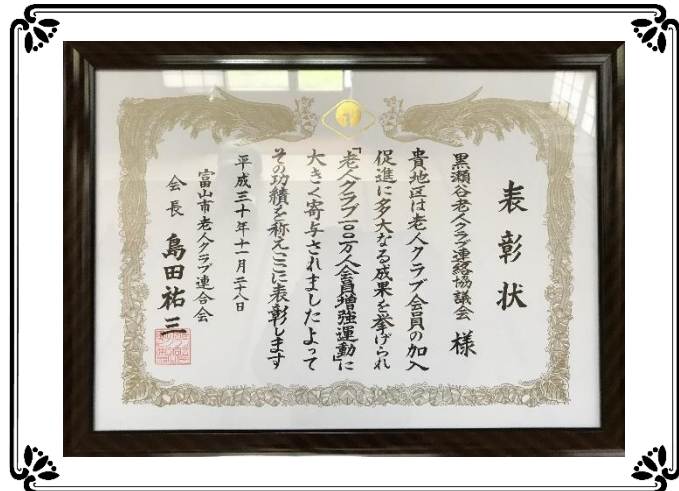 表彰状
黒瀬谷老人クラブ連絡協議会 様
貴地区は老人クラブ会員の加入
促進に多大なる成果を挙げられ
「老人クラブ一〇〇万人会員増強運動」に
大きく寄与されましたよって
その功績を称えここに表彰します
平成三十年十一月二十八日
富山市老人クラブ連合会
会長 島田祐三